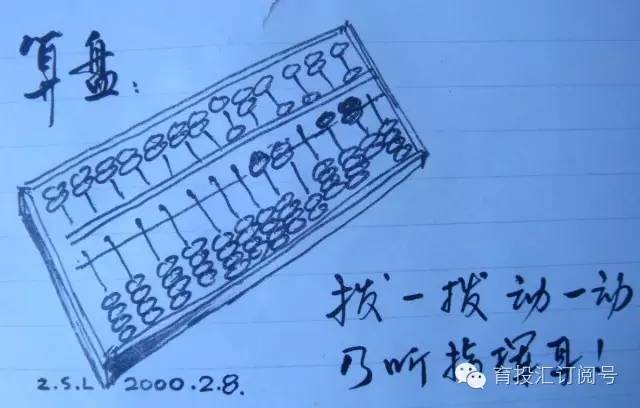 算盘:
拨一拨 动一动
乃听指挥耳!
Z.S.L 2000.2.8.
育投汇订阅号